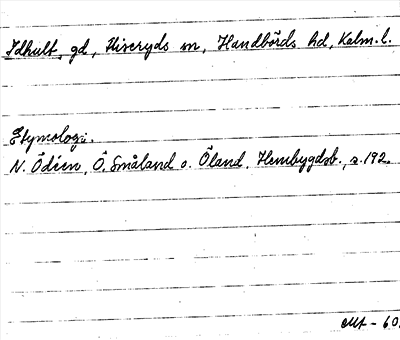 Idhult, gd, Hiseryds sn, Handbörds hd, Kalm. l.
Etymologi.
N. Ödéen, Ö. Småland o. Öland. Hembygdsb., s. 192.
Mt - 60.